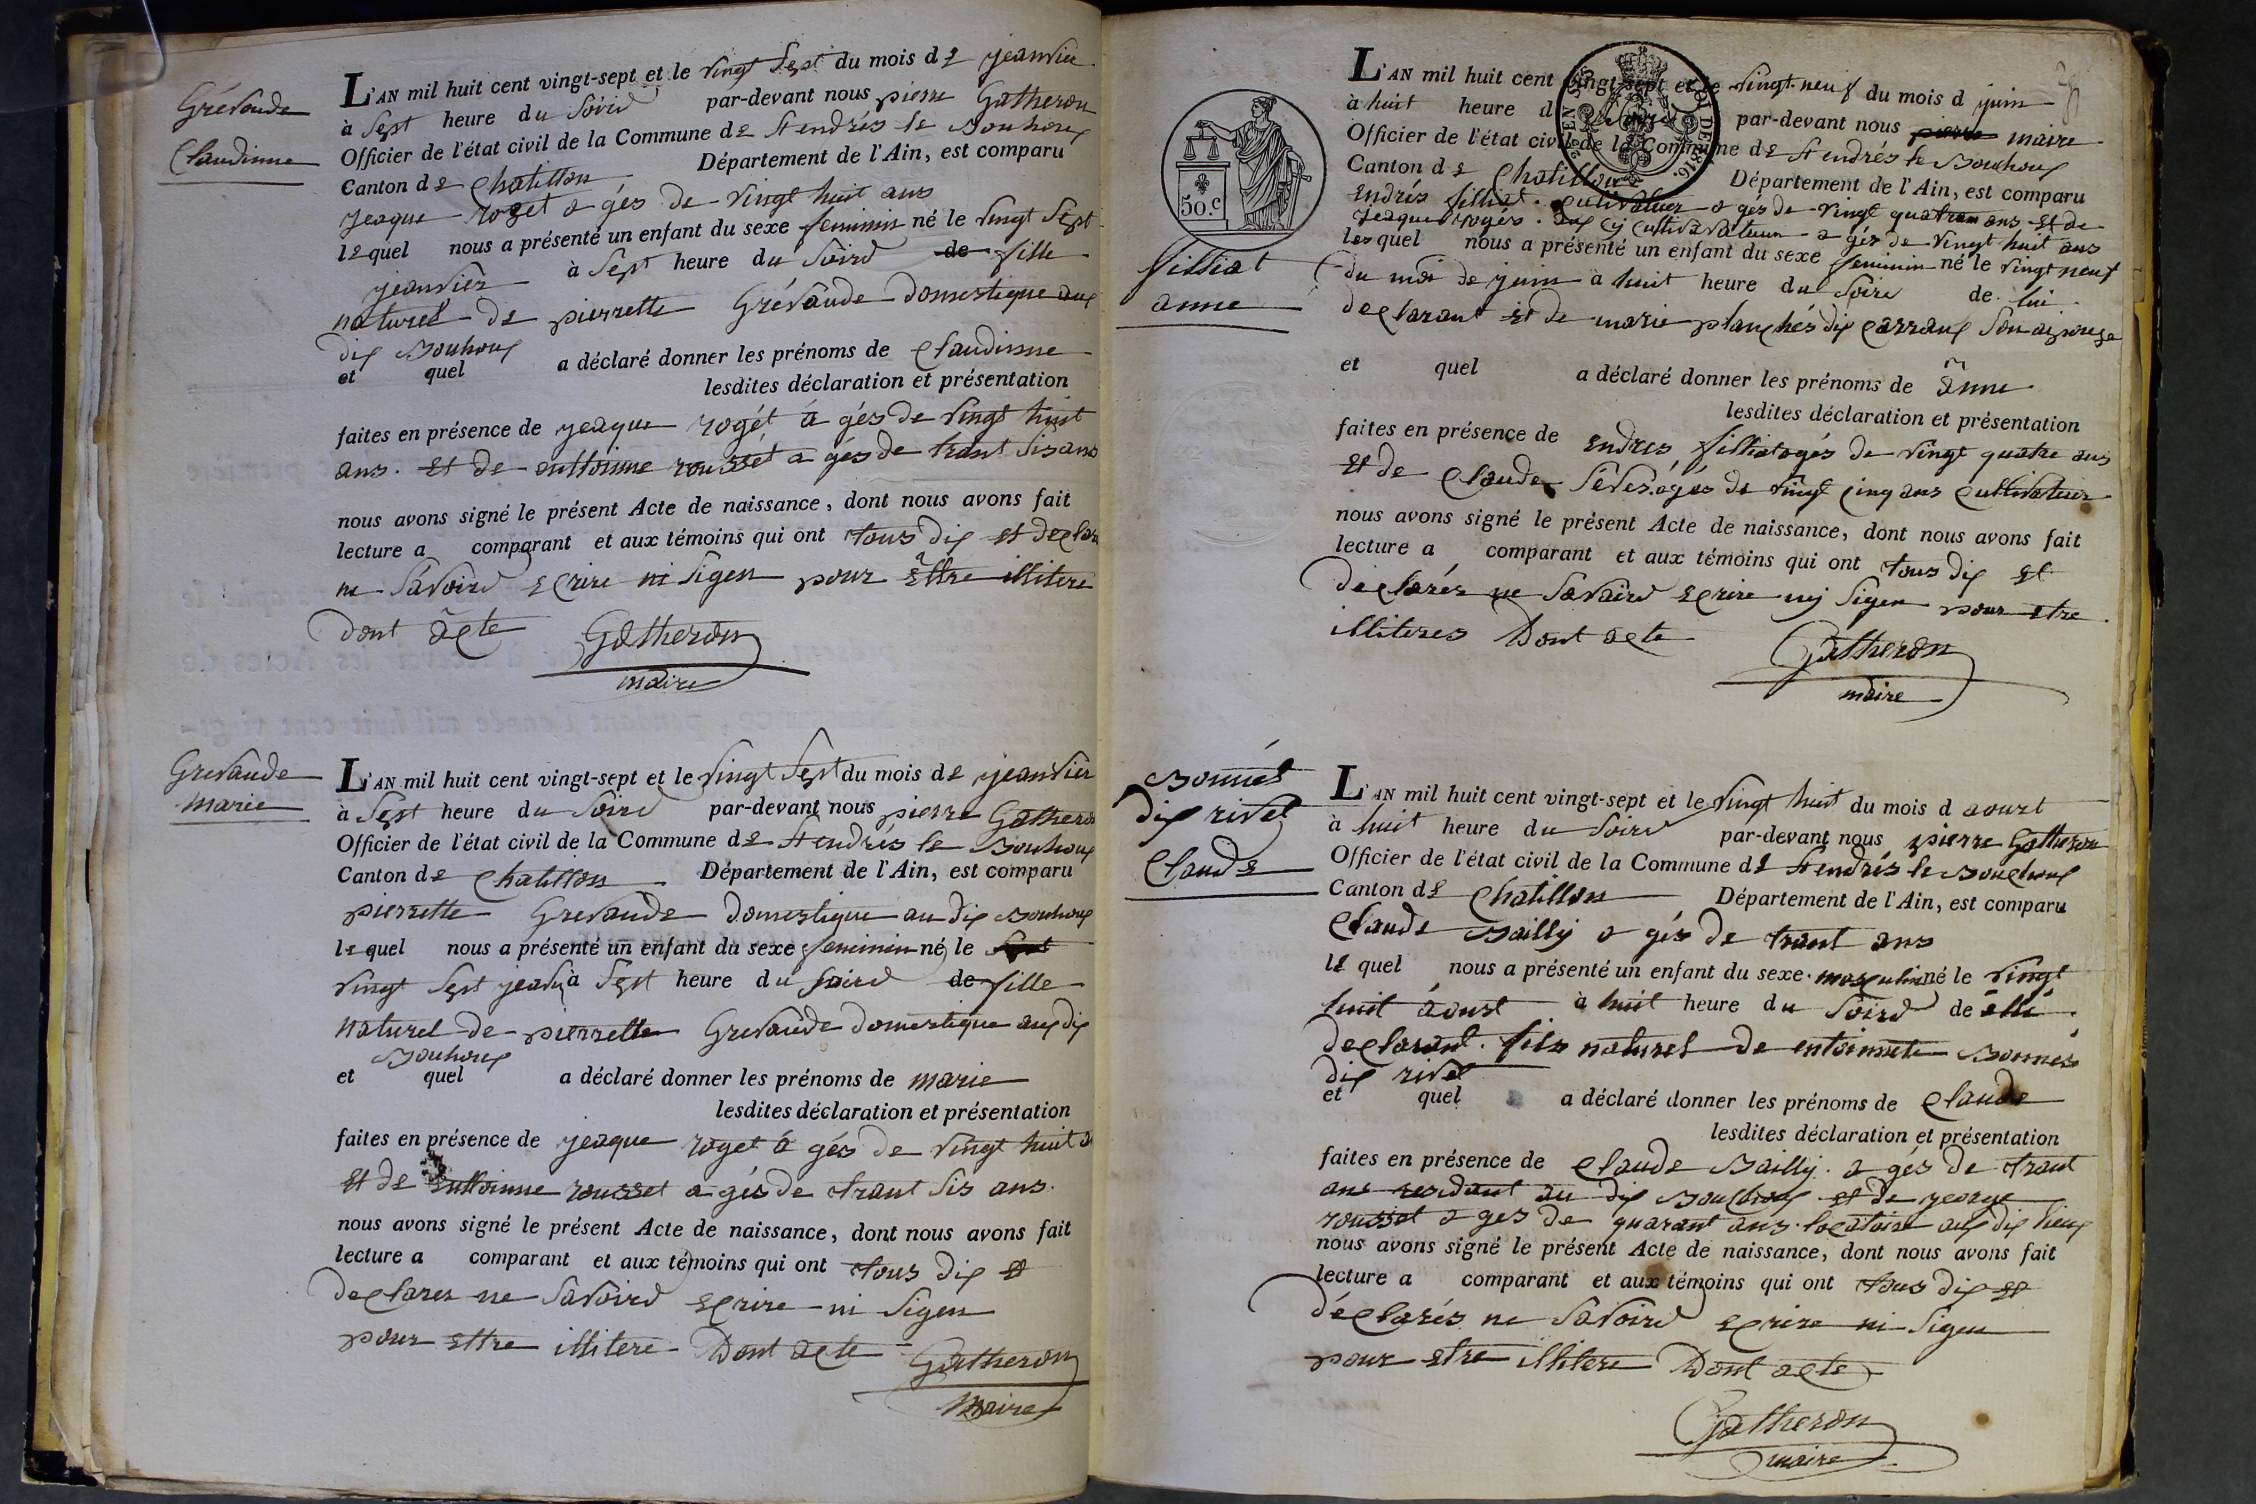 Grévaude
Claudinne
L'AN mil huit cent vingt-sept et le vingt sept du mois de jeanvier
à sept heure du soird par-devant nous pierre Gatheron
Officier de l'état civil de la Commune de st endrés le Bouhoux
Canton de Chatillon Département de l'Ain, est comparu
jeaque roget a gés de vingt huit ans
le quel nous a présenté un enfant du sexe feminin né le vingt sept
jeanvier à sept heure du soird de fille
naturel de pierrette Grévaude domestique aux
dix Bouhoux
et quel a déclaré donner les prénoms de Claudinne
lesdites déclaration et présentation
faites en présence de jeaque rogét a gés de vingt huit
ans. et de enttoinne rousset a gés de trant sis ans
nous avons signé le présent Acte de naissance, dont nous avons fait
lecture a comparant et aux témoins qui ont tous dix et declar
ne savoird ecrire ni signer pour ettre illitere
dont acte Gatheron
maire
Grevaude
marie
L'AN mil huit cent vingt-sept et le vingt sept du mois de jeanvier
à sept heure du soird par-devant nous pierre Gatheron
Officier de l'état civil de la Commune de st endrés le Bouhoux
Canton de Chatillon Département de l'Ain, est comparu
pierrette Grevaude domestique au dix Bouhoux
le quel nous a présenté un enfant du sexe feminin né le
vingt sept à sept heure du soird de fille
naturel de pierrette Grevaude domestique aux dix
Bouhoux
et quel a déclaré donner les prénoms de marie
lesdites déclaration et présentation
faites en présence de jeaque roget a gés de vingt huit a
et de enttoinne rousset a gés de trant sis ans.
nous avons signé le présent Acte de naissance, dont nous avons fait
lecture a comparant et aux témoins qui ont tous dix et
declarer ne savoird ecrire ni signer
pour ettre illitere Dont acte Gatheron
maire
50.c
filliat
anne
L'AN mil huit cent vingt-sept et le vingt neuf du mois d juin
à huit heure d par-devant nous pierre maire
Officier de l'état civil de la Commune de st endrés le Bouhoux
Canton de Chatillon Département de l'Ain, est comparu
endrés filliat cultivateur a gés de vingt quatre ans et de
jeaque rogés cultivateur a gés de vingt huit ans
les quel nous a présenté un enfant du sexe feminin né le vingt neuf
du moi de juin a huit heure du soire de lui
declarant et de marie planchés dix carraux son aipouse
et quel a déclaré donner les prénoms de anne
lesdites déclaration et présentation
faites en présence de endres filliat agés de vingt quatre ans
et de Claude agés de vingt cinq ans cultivateur
nous avons signé le présent Acte de naissance, dont nous avons fait
lecture a comparant et aux témoins qui ont tous dix et
declarés ne savoird ecrire nij signer pour etre
illiteres Dont acte Gatheron
maire
Bonnés
dix rivet
Claude
L'AN mil huit cent vingt-sept et le vingt huit du mois d aoust
à huit heure du soird par-devant nous pierre Gatheron
Officier de l'état civil de la Commune de st endrés le Bouchoux
Canton de Chatillon Département de l'Ain, est comparu
Claude Bailly a gés de trant ans
le quel nous a présenté un enfant du sexe masculin né le vingt
huit aoust à huit heure du soird de elle
declarant. fils naturel de entoinnete Bonnés
dix rivet
et quel a déclaré donner les prénoms de Claude
lesdites déclaration et présentation
faites en présence de Claude Bailly. a gés de trant
ans residant au dix Bouchoux et de george
rousset a ges de quarant ans. locatoire aux dix lieux
nous avons signé le présent Acte de naissance, dont nous avons fait
lecture a comparant et aux témoins qui ont tous dix et
déclarés ne savoird ecrire ni signer
pour etre illitere Dont acte
Gatheron
maire